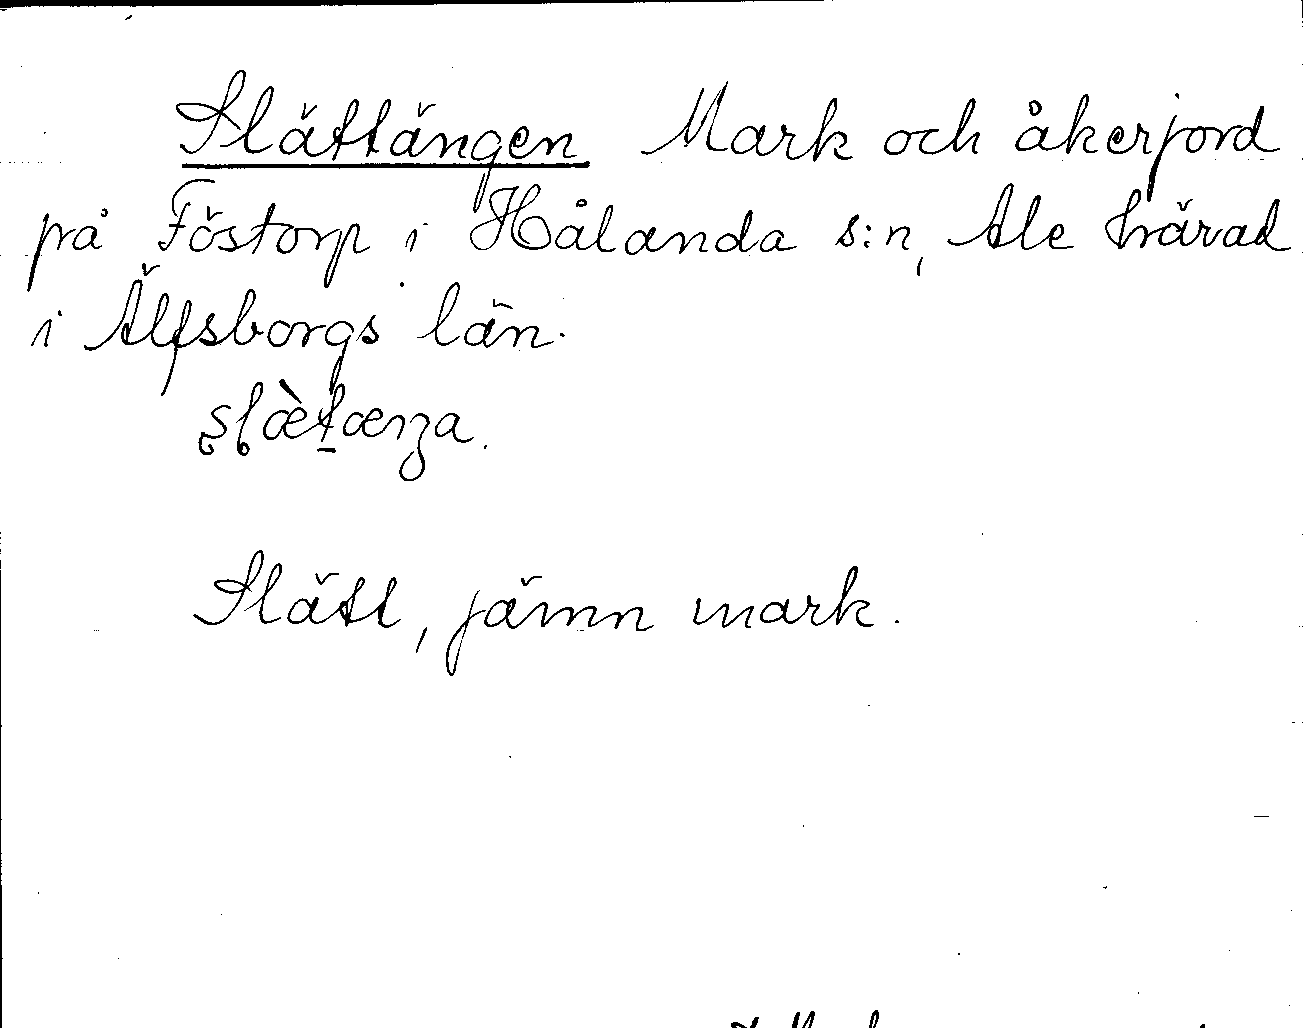 Slättängen Mark och åkerjord
på Föstorp i Hålanda s:n, Ale härad
i Älfsborgs län.
Slätt, jämn mark.